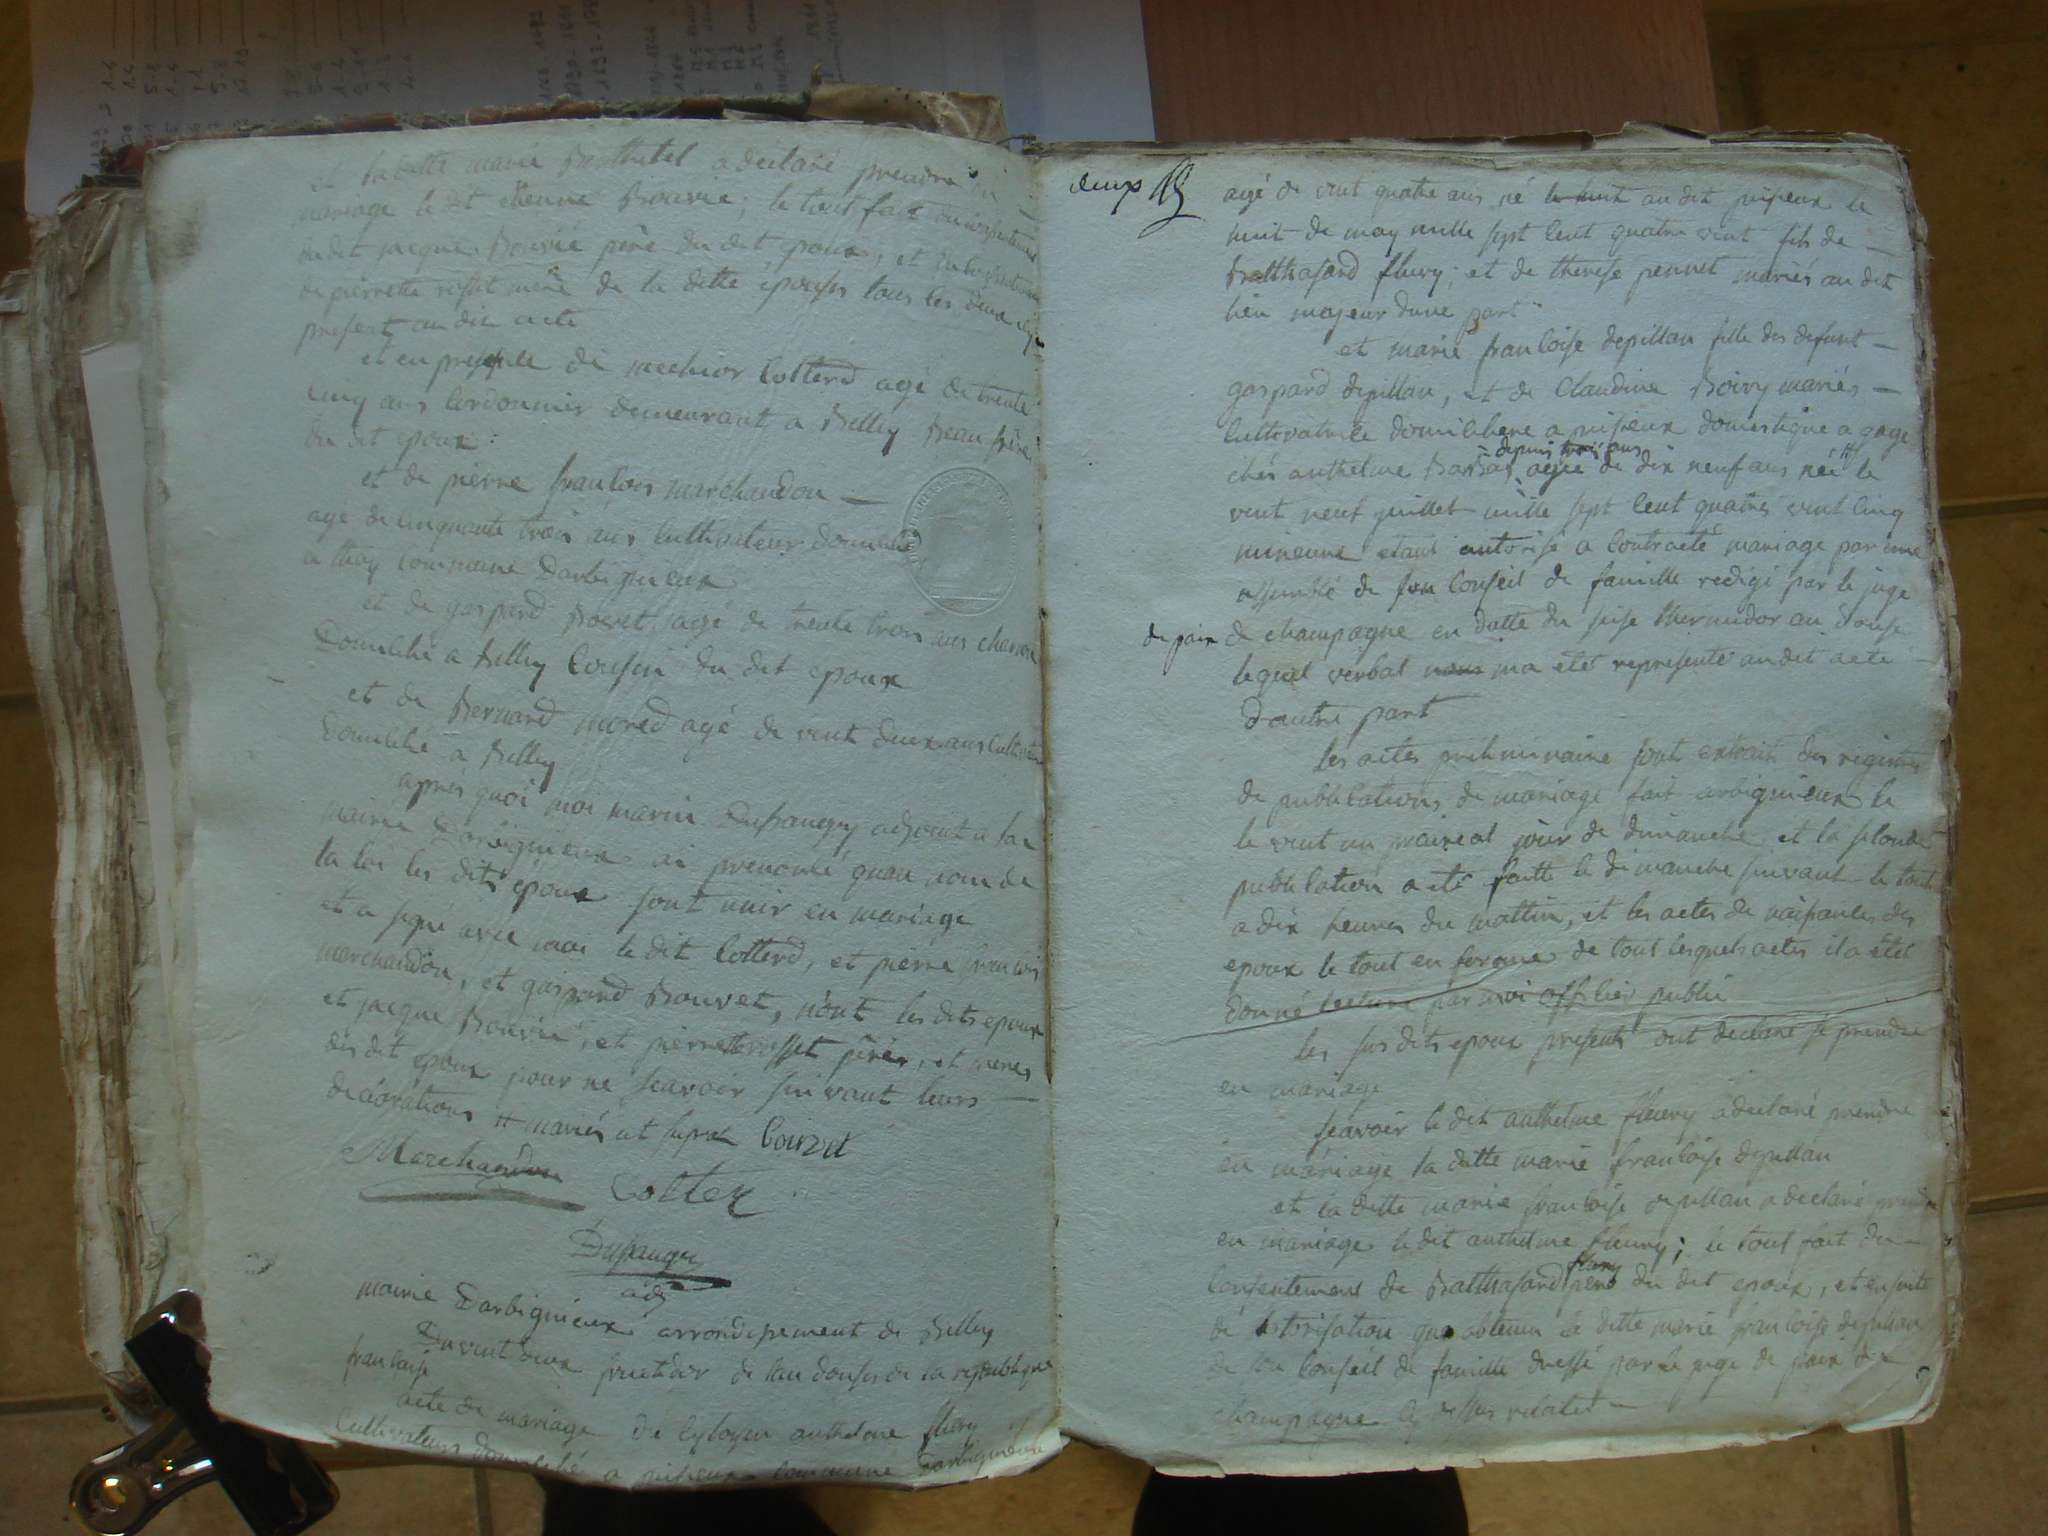 et la ditte marie Berthetel a déclaré prendre en
mariage le dit étienne Bouvié; le tout fait du consentement
du dit jacque Bouvié père du dit époux, et du consentement
de pierrette rosset mère de la ditte epouse tous les deux icy
present au dit acte
et en presence de melchior Cotterd agé de trente
cinq ans Cordonnier demeurant a Belley Beau frère
du dit epoux
et de pierre francois marchandon —
agé de cinquante trois ans cultivateur domicilié
a thoy commune Darbignieux
et de gaspard Bovet agé de trente trois ans
Domicilié a Belley Cousin du dit epoux
et de Bernard mored agé de vint deux ans cultivateur
Domicilié a Belley
après quoi moi marin Dufauguy adjoint a la
mairie Darbignieux ai prenoncé quau nom de
la loi les dits epoux sont unir en mariage
et a signé avec moi le dit Cotterd, et pierre francois
marchandon, et gaspard Bouvet, nont les dits epoux
et jacque Bouvié, et pierrette rosset pères, et meres
des dit epoux pour ne scavoir suivant leurs —
declarations # mariés
Marchandon
Cotter
adj
mairie Darbignieux arrondissement de Belley
Du vint deux fructidor de lan douse de la republique
francaise
acte de mariage de Cytoyen anthelme fleury
Cultivateur domicilié a pisieux commune Darbignieux
deux
agé de vint quatre ans né le huit au dit pisieux le
huit de may mille sept cent quatre vint fils de —
Balthasard fleury; et de therese pennet mariés au dit
lieu majeur dune part
et marie francoise depillau fille des defunt —
gaspard depillau, et de Claudine Boiry mariés —
Cultivatrice domiciliere a pisieux domestique a gage
depuis trois ans
chés anthelme Barbas, agée de dix neuf ans née le
vint neuf juillet mille sept cent quatre vint cinq
mineure etant autorisé a contracté mariage par une
assemblé de son Conseil de famille redigé par le juge
de paix de champagne en datte du seise thermidor an douse
lequel verbal nous ma eté representé au dit acte
Dautre part
les actes preliminaire sont extrait des registres
de publications de mariage fait arbignieux le
le vint un prairéal jour de dimanche, et la seconde
publication a eté faitte le dimanche suivant le tout
a dix heures du mattin, et les actes de naissances des
epoux le tout en forme de tout lesquels actes il a été
donné lecture par moi officier public
les sus dits epoux presents ont declaré se prendre
en mariage
scavoir le dit anthelme fleury a declaré prendre
en mariage la ditte marie francoise depillau
et la ditte marie francoise depillau a declaré prendre
en mariage le dit anthelme fleury; le tout fait du —
fleury
consentement de Balthasard père du dit epoux, et ensuite
de lotorisation qua obtenu la ditte marie francoise depillau
de son Conseil de famille dressé par le juge de paix de
champagne cy dessus relatée —